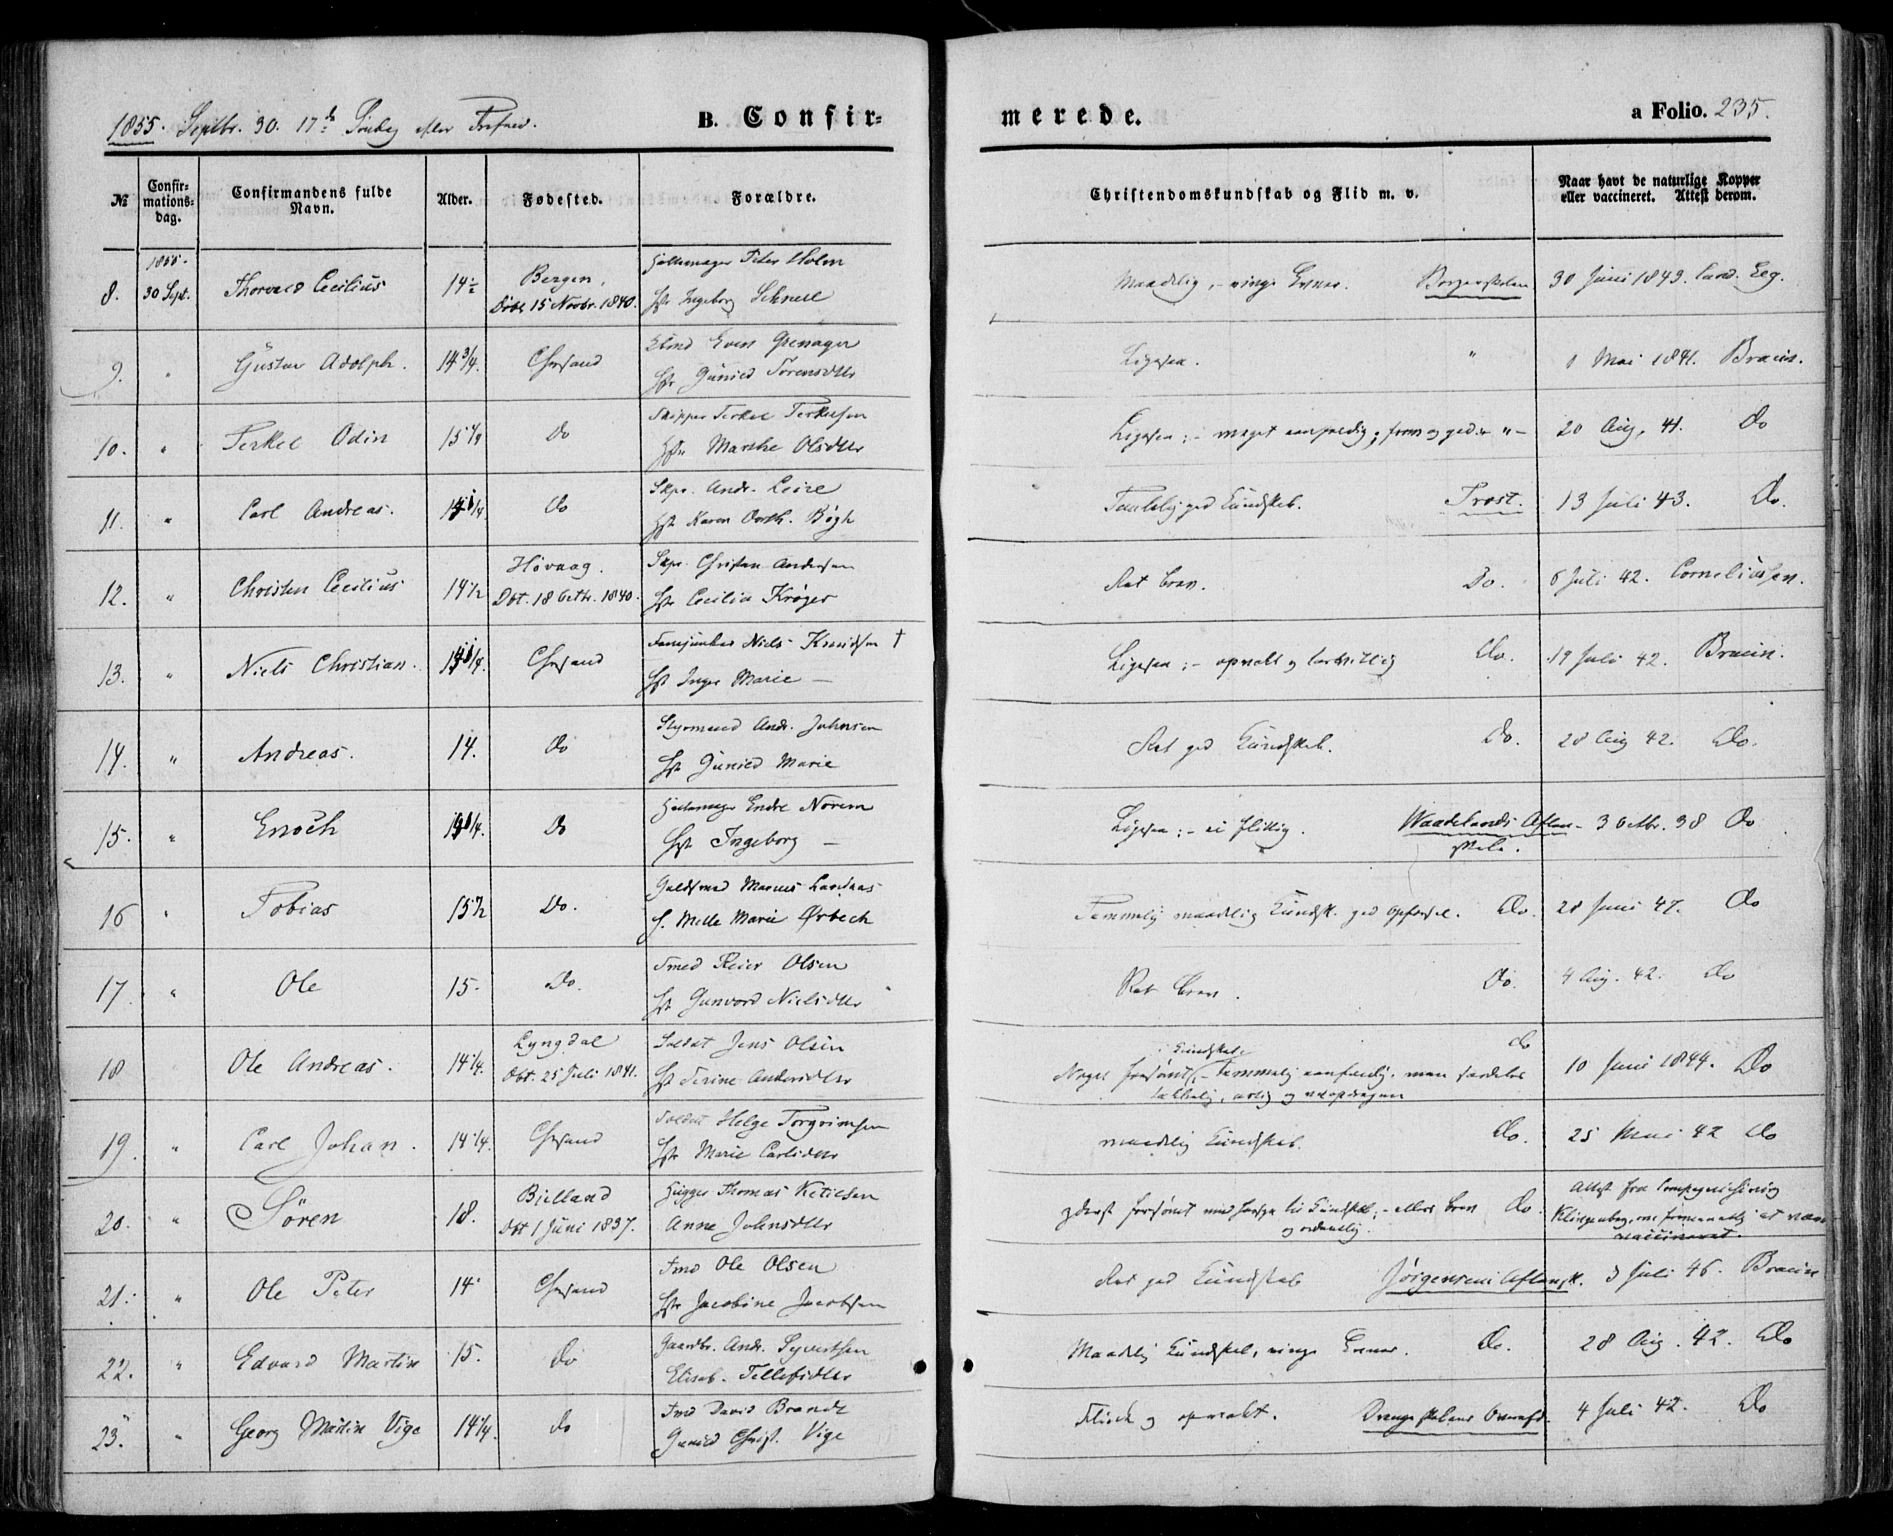 1855. Septbr. 30. 17de Søndag efter Trefned.
B. Confir-
merede.
a Folio. 235.
№
Confir-
mations-
dag.
Confirmandens fulde
Navn.
Alder.
Fødested.
Forældre.
Christendomskundskab og Flid m. v.
Naar havt de naturlige Kopper
eller vaccineret. Attest derom.
1855.
8. 30 Sept. Thorvald Cecilius 14½ Bergen,
Døbt 15 Novbr. 1840.
Peter Holm
Hst Ingeborg Schnell
Maadelig, - ringe Evner. Borgerskolen 30 Juni 1843. Cand. Eeg.
9. " Gustav Adolph. 14¾. Chrsand
Even Grenager
Hst Gunild Sørensdtr
Ligesaa. " 1 Mai 1841. Bruun.
10. " Terkel Odin 15¼ Do
Skipper Terkel Terkelsen
Hst Marthe Olsdtr
Ligesaa; - meget 20 Aug. 41. Do
11. " Carl Andreas. 14¼ Do
Skpr. Andr.
Hst Karen Doth. Bøgh
Temlelig god Kundskab. Trost. 13 Juli 43. Do.
12. " Christen Cecilius 14½ Høvaag.
Dbt. 18 Octbr. 1840.
Skpr. Christen Andersen
Hst Cecilia Krøger
Ret brav. Do. 6 Juli 42. Corneliussen.
13. " Niels Christian. 14¼. Chrsand
Niels Knudsen †
Hst Inger Marie —
Ligesaa; - opvakt og Do. 19 Juli 42. Bruun.
14. " Andreas. 14. Do
Styrmand Andr. Johnsen
Hst Gunild Marie
Ret god Kundskab. Do. 28 Aug 42. Do.
15. " Enoch 14¼. Do
Endre Norem
Hst Ingeborg —
Ligesaa; - ei flittig. Waadelands Aften-
skole.
3 Octbr. 38 Do
16 " Tobias 15½ Do.
Guldsmed Marcus Landaas
S. Mille Marie Ørbech
Temmelig maadelig Kundsk. god Opførsel. Do. 28 Juni 47. Do
17. " Ole 15. Do.
Smed Reier Olsen
Hst Gunvord Nielsdtr
Ret brav. Do. 4 Aug. 42. Do
18 Ole Andreas. 14¼. Lyngdal
Dbt. 25 Juli 1841.
Soldat Jens Olsen
Hst Serine Andersdtr
Kundskab
Noget forsømt, - temmelig men særdeles do
10 Juni 1844. Do
19. " Carl Johan. 14¼. Chrsand
Soldat Helge Torgrimsen
Hst Marie Carlsdtr
maadelig Kundskab. Do. 25 Mai 42 Do
20. " Sören 18. Bjelland
Dbt 1 Juni 1837.
Hugger Thomas Ketilsen
Anne Johnsdtr
yderst forsømt med Hensyn til Kundskab; - ellers brav Do.
og ordentlig.
Attest fra Compagnichirurg
Klingenberg, at være
vaccineret.
21. " Ole Peter 14 Chrsand
Smd Ole Olsen
Hst Jacobine Jacobsen
Ret god Kundskab Jørgensens Aftensk. 3 Juli 46. Bruun
22. " Edvard Martin 15. Do
Gaardbr. Andr. Syvertsen
Elisab. Tellefsdtr
Maadelig Kundskab, ringe Evner. Do. 28 Aug. 42. Do
23. " Georg Martin Vige 14¼. Do
Smd David Brandt
Gunild Christ. Vige
Flink og opvakt. 4 Juli 42. Do